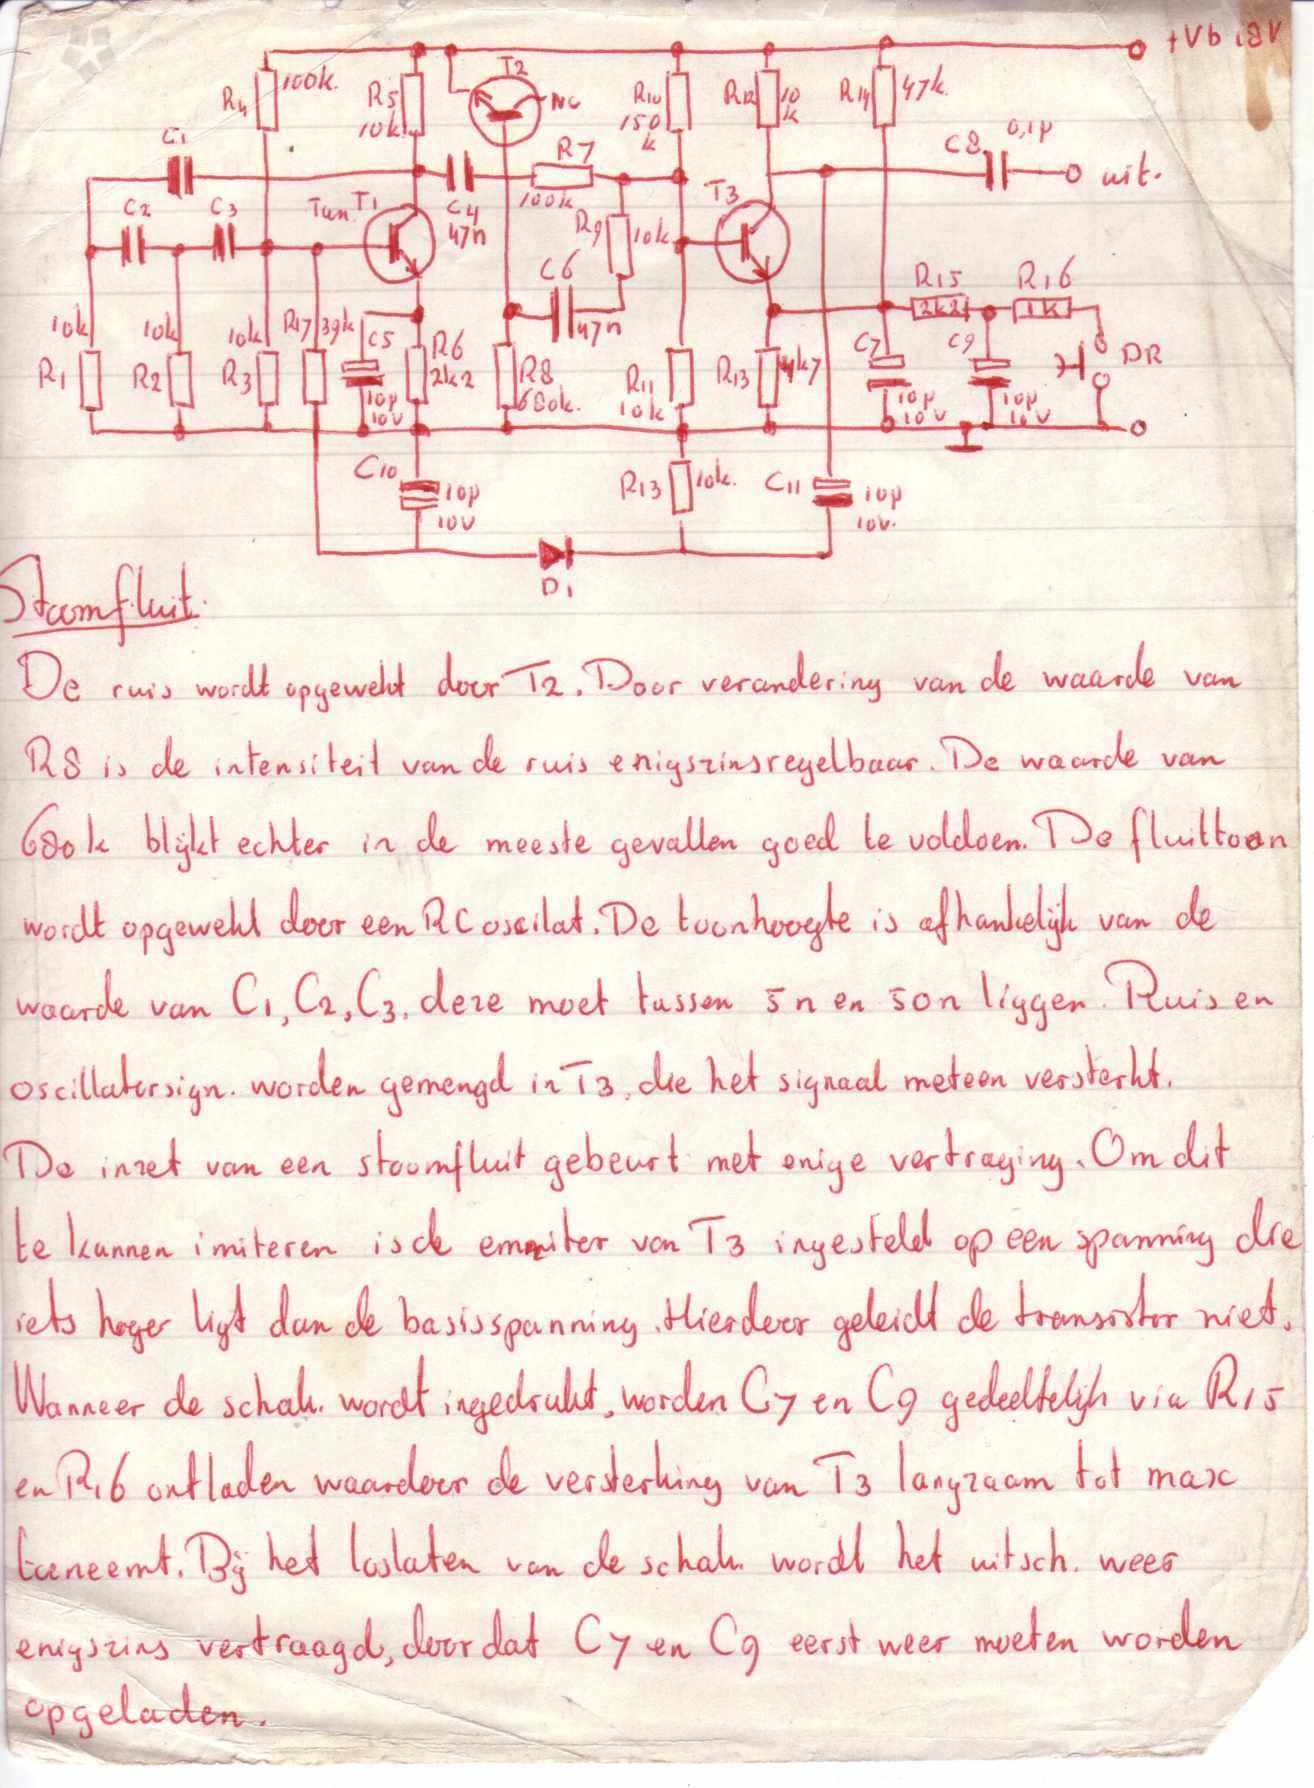 +Vb 18V
R4 100k.
R5 10k
T2
NC
R10 150 k
R12 10 k
R14 47k.
C1
C2
C3
T1
C4 47n
R7 100k
R9 10k
T3
C8 0,1µ
uit.
C6 47n
R15 2k2
R16 1k
DR
10k R1
10k R2
10k R3
R17 39k
C5 10µ 10V
R6 2k2
R8 680k.
R11 10k
R13 4k7
C7 10µ 10V
C9 10µ 10V
C10 10µ 10V
R13 10k.
C11 10µ 10V.
D1
Stoomfluit.
De ruis wordt opgewekt door T2. Door verandering van de waarde van
R8 is de intensiteit van de ruis enigszins regelbaar. De waarde van
680k blijkt echter in de meeste gevallen goed te voldoen. De fluittoon
wordt opgewekt door een RC oscilat. De toonhoogte is afhankelijk van de
waarde van C1, C2, C3, deze moet tussen 5n en 50n liggen. Ruis en
oscillatorsign. worden gemengd in T3, die het signaal meteen versterkt.
De inzet van een stoomfluit gebeurt met enige vertraging. Om dit
te kunnen imiteren is de emmiter van T3 ingesteld op een spanning die
iets hoger ligt dan de basisspanning. Hierdoor geleidt de transistor niet.
Wanneer de schak. wordt ingedrukt, worden C7 en C9 gedeeltelijk via R15
en R16 ontladen waardoor de versterking van T3 langzaam tot max
toeneemt. Bij het loslaten van de schak. wordt het uitsch. weer
enigszins vertraagd, doordat C7 en C9 eerst weer moeten worden
opgeladen.